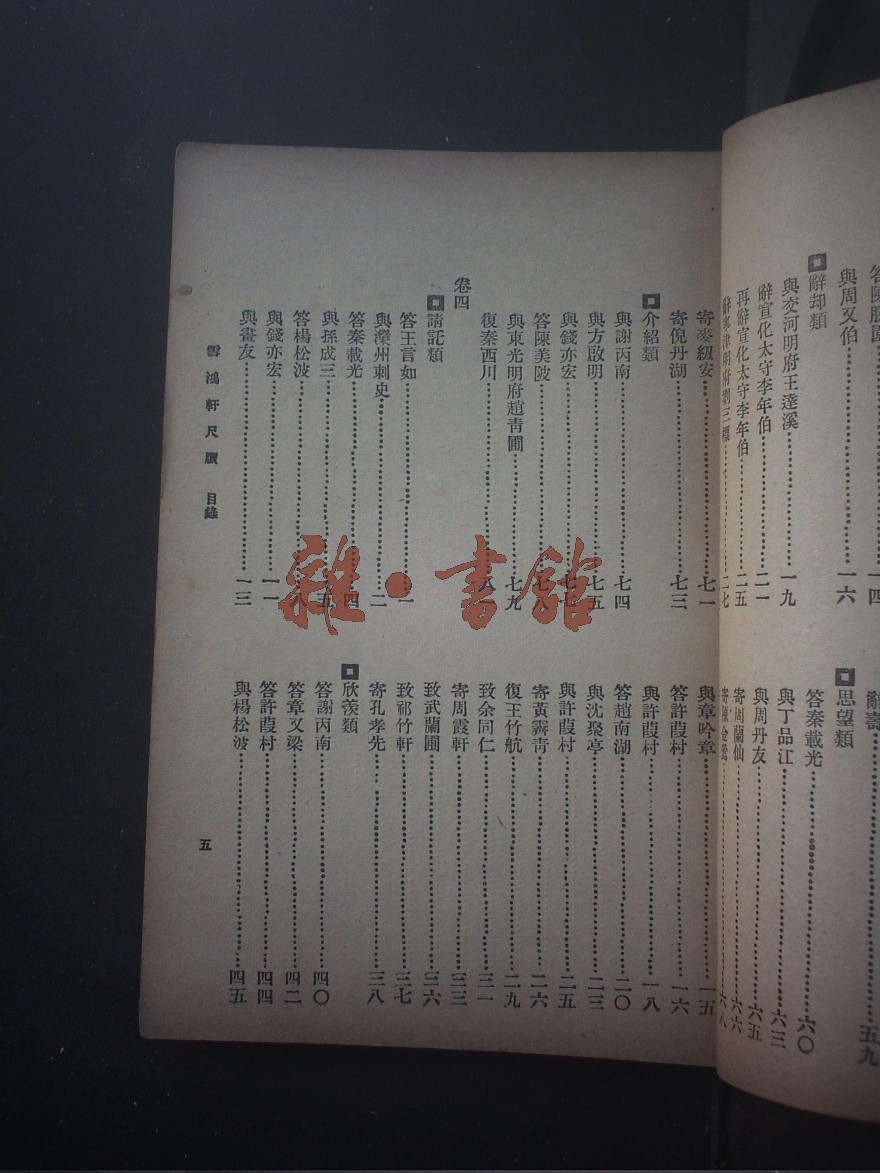 與周又伯⋯⋯一六
辭却類
與交河明府王蓬溪⋯⋯一九
辭宣化太守李年伯⋯⋯二一
再辭宣化太守李年伯⋯⋯二五
辭壽⋯⋯五九
思望類
答秦載光⋯⋯六〇
與丁品江⋯⋯六三
與周丹友⋯⋯六五
寄周蘭仙⋯⋯六六
寄麥紐安⋯⋯七一
寄倪丹湖⋯⋯七三
介紹類
與謝丙南⋯⋯七四
與方啟明⋯⋯七五
與錢亦宏⋯⋯
答陳美陂⋯⋯七八
與東光明府趙青圃⋯⋯七九
復秦西川⋯⋯
卷四
請託類
答王言如⋯⋯一
與灤州刺史⋯⋯二
答秦載光⋯⋯四
與孫成三⋯⋯五
答楊松波⋯⋯八
與錢亦宏⋯⋯一一
與畫友⋯⋯一三
與章吟章⋯⋯一五
答許葭村⋯⋯一六
與許葭村⋯⋯一八
答趙南湖⋯⋯二〇
與沈聚亭⋯⋯二三
與許葭村⋯⋯二五
寄黃霽青⋯⋯二六
復王竹航⋯⋯二九
致余同仁⋯⋯三一
寄周霞軒⋯⋯三三
致武蘭圃⋯⋯三六
致祁竹軒⋯⋯三七
寄孔孝先⋯⋯三八
欣羨類
答謝丙南⋯⋯四〇
答章又梁⋯⋯四二
答許葭村⋯⋯四四
與楊松波⋯⋯四五
雪鴻軒尺牘 目錄
五
雜·書館